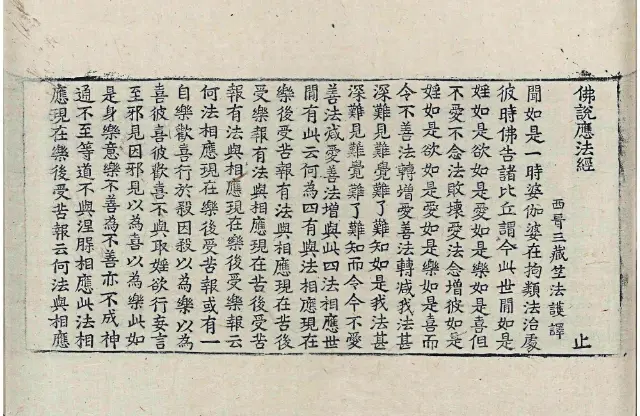 佛說應法經 止
西晉三藏竺法護譯
聞如是一時婆伽婆在拘類法治處
彼時佛告諸比丘謂今此世閒如是
婬如是欲如是愛如是樂如是喜但
不愛不念法敗壞愛法念增彼如是
婬如是欲如是愛如是樂如是喜而
令不善法轉增愛善法轉减我法甚
深難見難覺難了難知如是我法甚
深難見難覺難了難知而令今不愛
善法减愛善法增與此四法相應世
間有此云何為四有與法相應現在
樂後受苦報有法與相應現在苦後
受樂報有法與相應現在苦後受苦
報有法與相應現在樂後受樂報云
何法相應現在樂後受苦報或有一
自樂歡喜行於殺因殺以為樂以為
喜彼喜彼歡喜不與取婬欲行妄言
至邪見因邪見以為喜以為樂此如
是身樂意樂不善為不善亦不成神
通不至等道不與涅槃相應此法相
應現在樂後受苦報云何法與相應